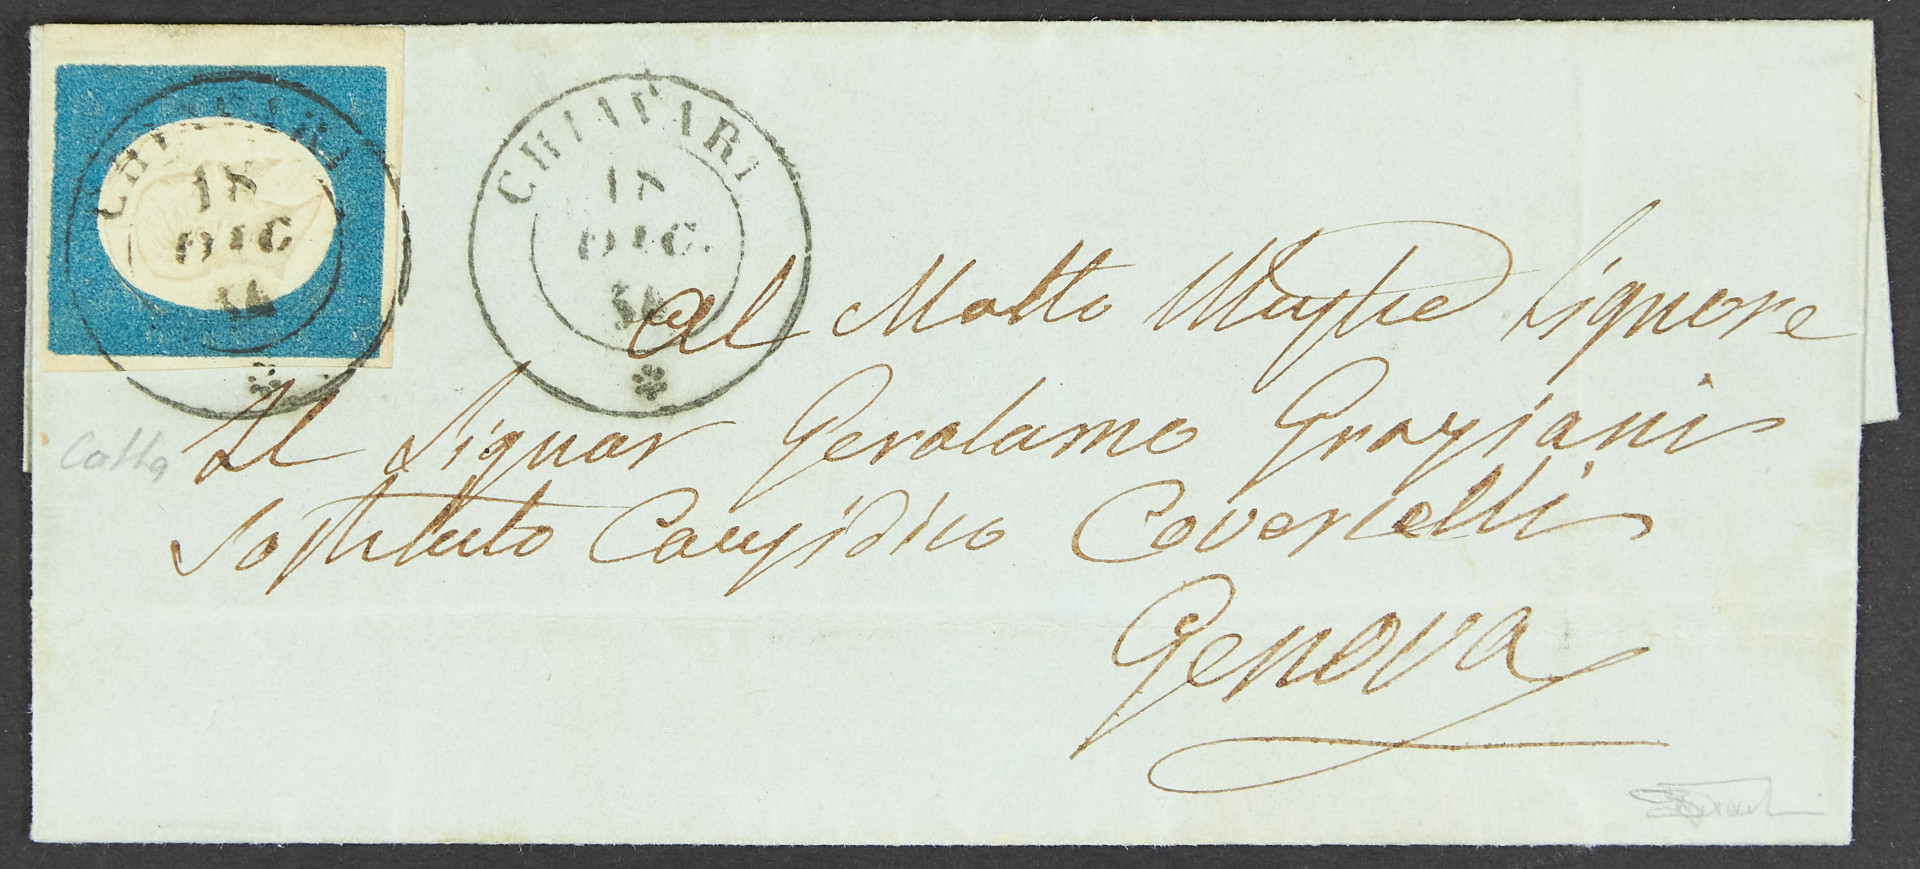 CHIAVARI
18
DIC
54
CHIAVARI
18
DIC.
54
Al Molto Magfre Signore
Il Signor Gerolamo Graziani
Sostituto Causidico Covercelli
Genova